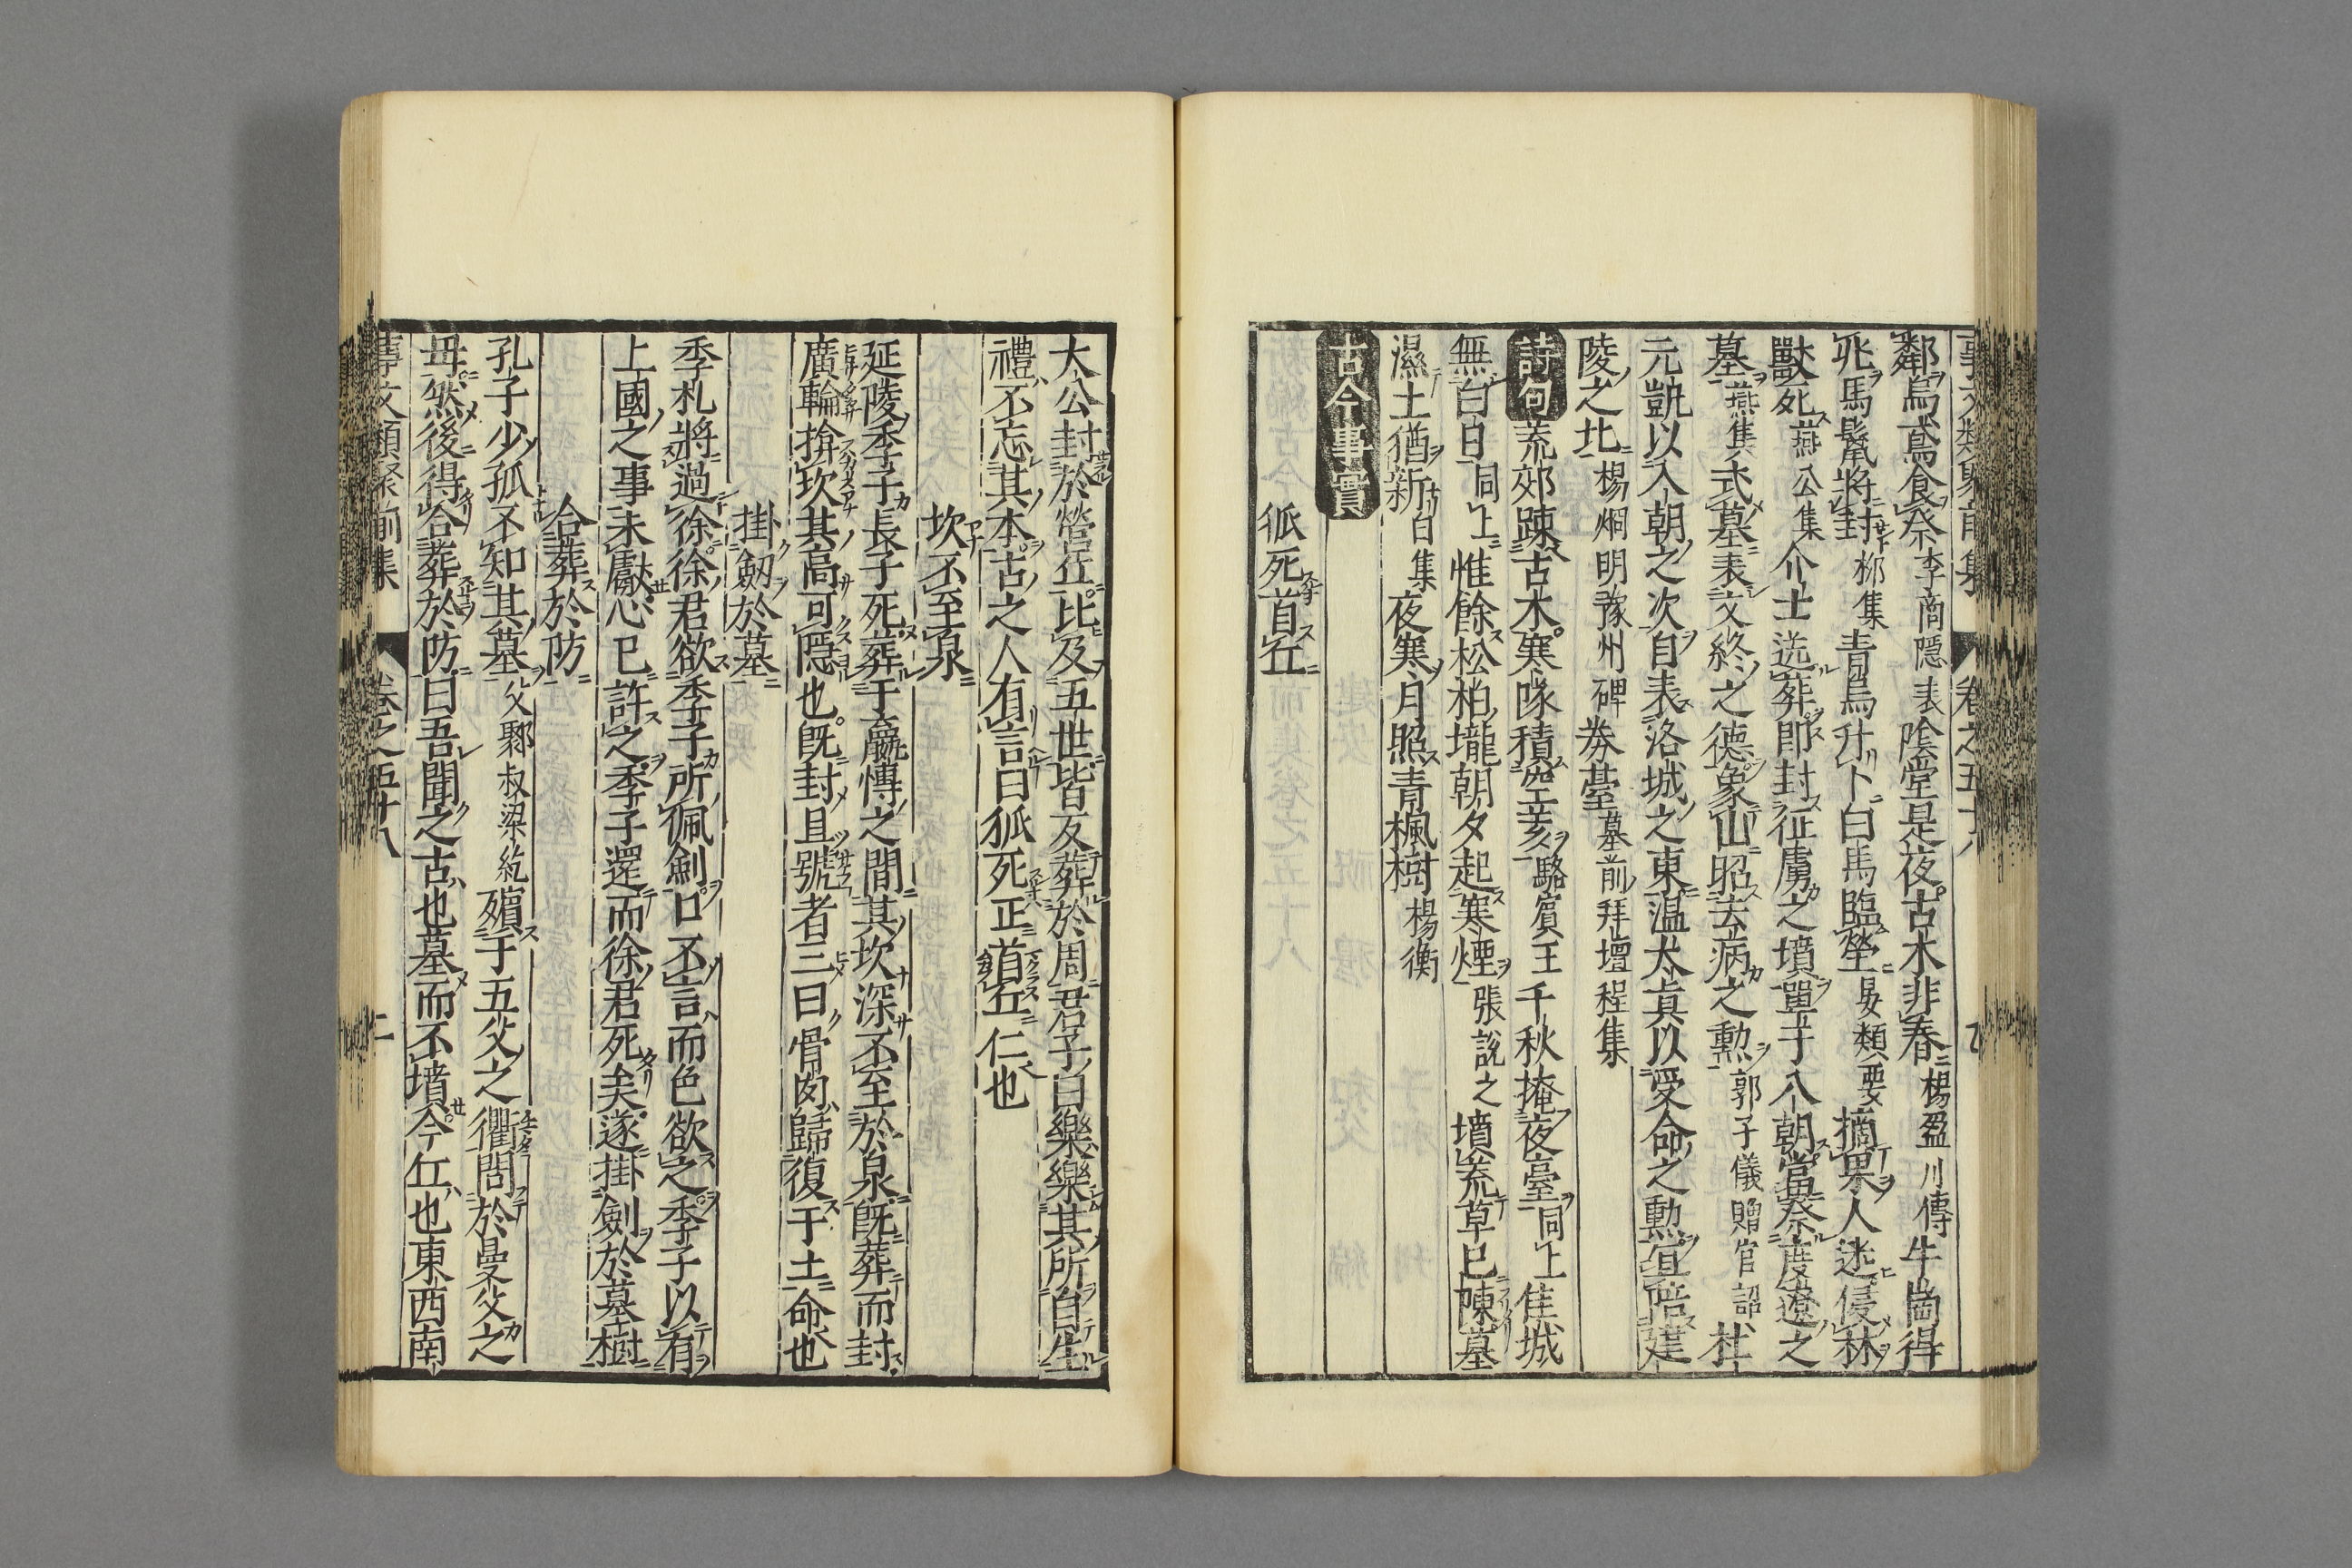 事文類聚前集 卷之五十八
鄰烏鳶食祭李商隱表陰堂是夜古木非春楊盈川傳牛崗得
兆馬鬣將封柳集青烏升卜白馬臨塋晏類要摘果人迷侵林
獸死燕公集介士送葬即封征虜之墳單于入朝當祭度遼之
墓燕集式墓表文終之德象山昭去病之勲郭子儀贈官詔杜
元凱以入朝之次自表洛城之東温太真以受命之勲宜陪建
陵之北楊烱明豫州碑券臺墓前拜壇程集
詩句荒郊疎古木寒隊積
駱賓王千秋掩夜臺同上焦城
無白日同上惟餘松柏壠朝夕起寒煙張説之墳荒草已陳墓
濕土猶新白集夜寒月照青楓樹楊衡
古今事實
狐死首丘
大公封於營丘比及五世皆反葬於周君子白樂樂其所自生
禮不忘其本古之人有言曰狐死正首丘仁也
坎不至泉
延陵季子長子死葬于嬴慱之間其坎深不至於泉既葬而封
廣輪揜坎其高可隱也既封且號者三曰骨肉歸復于土命也
掛劒於墓
季札將過徐徐君欲季子所佩劍口不言而色欲之季子以有
上國之事未獻心已許之季子還而徐君死矣遂掛劍於墓樹
合葬於防
孔子少孤不知其墓父鄹叔梁紇殯于五父之衢問於曼父之
母然後得合葬於防曰吾聞之古也墓而不墳今丘也東西南
事文類聚前集 卷之五十八 二